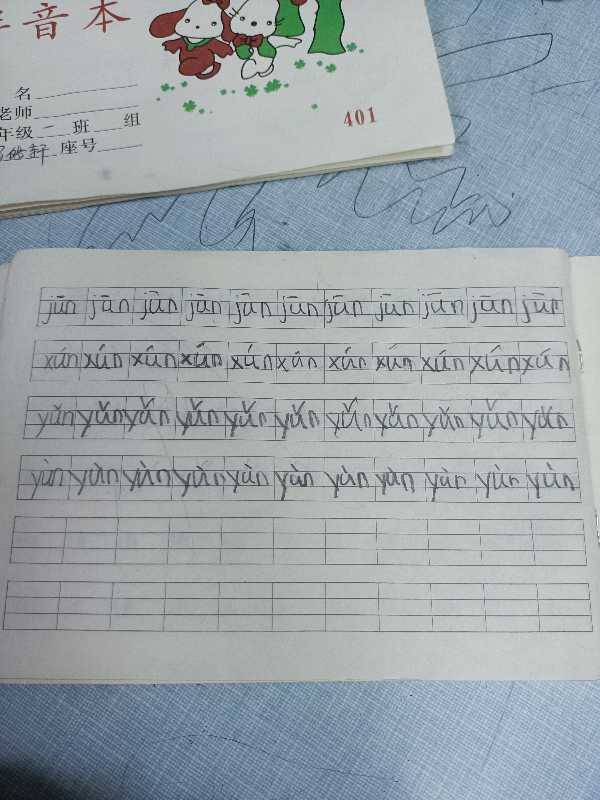 音本
名
老师
年级二班 组
座号
401
jūn jūn jūn jūn jūn jūn jūn jūn jūn jūn jūn
xún xún xún xún xún xún xún xún xún xún xún
yǔn yǔn yǔn yǔn yǔn yǔn yǔn yǔn yǔn yǔn yǔn
yùn yùn yùn yùn yùn yùn yùn yùn yùn yùn yùn